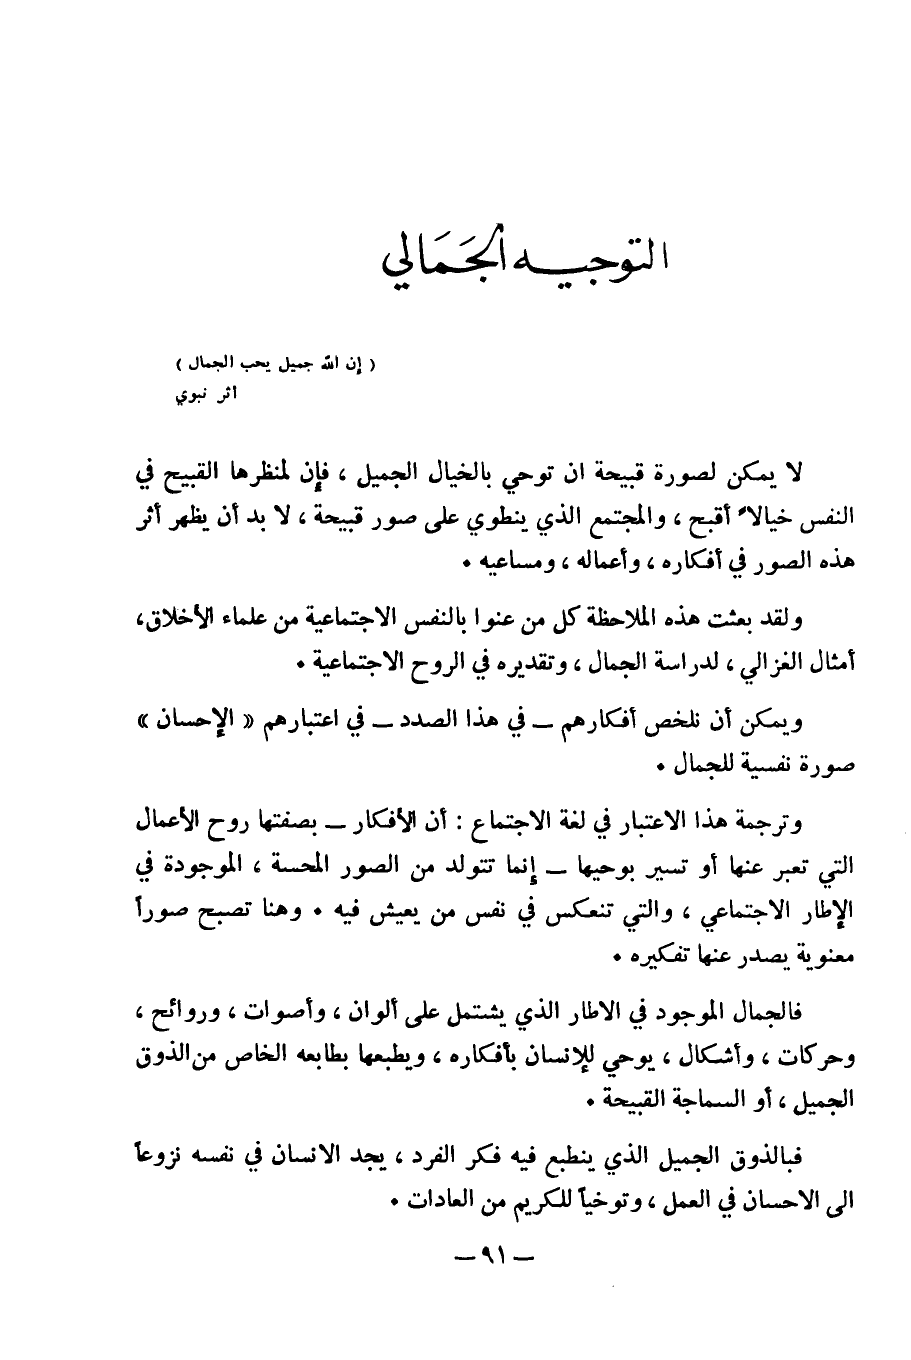 التوجيه الجَمَالي
( إن الله جميل يحب الجمال )
أثر نبوي
لا يمكن لصورة قبيحة ان توحي بالخيال الجميل ، فإن لمنظرها القبيح في
النفس خيالا ً أقبح ، والمجتمع الذي ينطوي على صور قبيحة ، لا بد أن يظهر أثر
هذه الصور في أفكاره ، وأعماله ، ومساعيه .
ولقد بعثت هذه الملاحظة كل من عنوا بالنفس الاجتماعية من علماء الأخلاق،
أمثال الغزالي ، لدراسة الجمال ، وتقديره في الروح الاجتماعية .
ويمكن أن نلخص أفكارهم ــ في هذا الصدد ــ في اعتبارهم « الإحسان »
صورة نفسية للجمال .
وترجمة هذا الاعتبار في لغة الاجتماع : أن الأفكار ــ بصفتها روح الأعمال
التي تعبر عنها أو تسير بوحيها ــ إنما تتولد من الصور المحسة ، الموجودة في
الإطار الاجتماعي ، والتي تنعكس في نفس من يعيش فيه . وهنا تصبح صوراً
معنوية يصدر عنها تفكيره .
فالجمال الموجود في الاطار الذي يشتمل على ألوان ، وأصوات ، وروائح ،
وحركات ، وأشكال ، يوحي للإنسان بأفكاره ، ويطبعها بطابعه الخاص من الذوق
الجميل ، أو السماجة القبيحة .
فبالذوق الجميل الذي ينطبع فيه فكر الفرد ، يجد الانسان في نفسه نزوعاً
الى الاحسان في العمل ، وتوخياً للكريم من العادات .
ــ ٩١ ــ